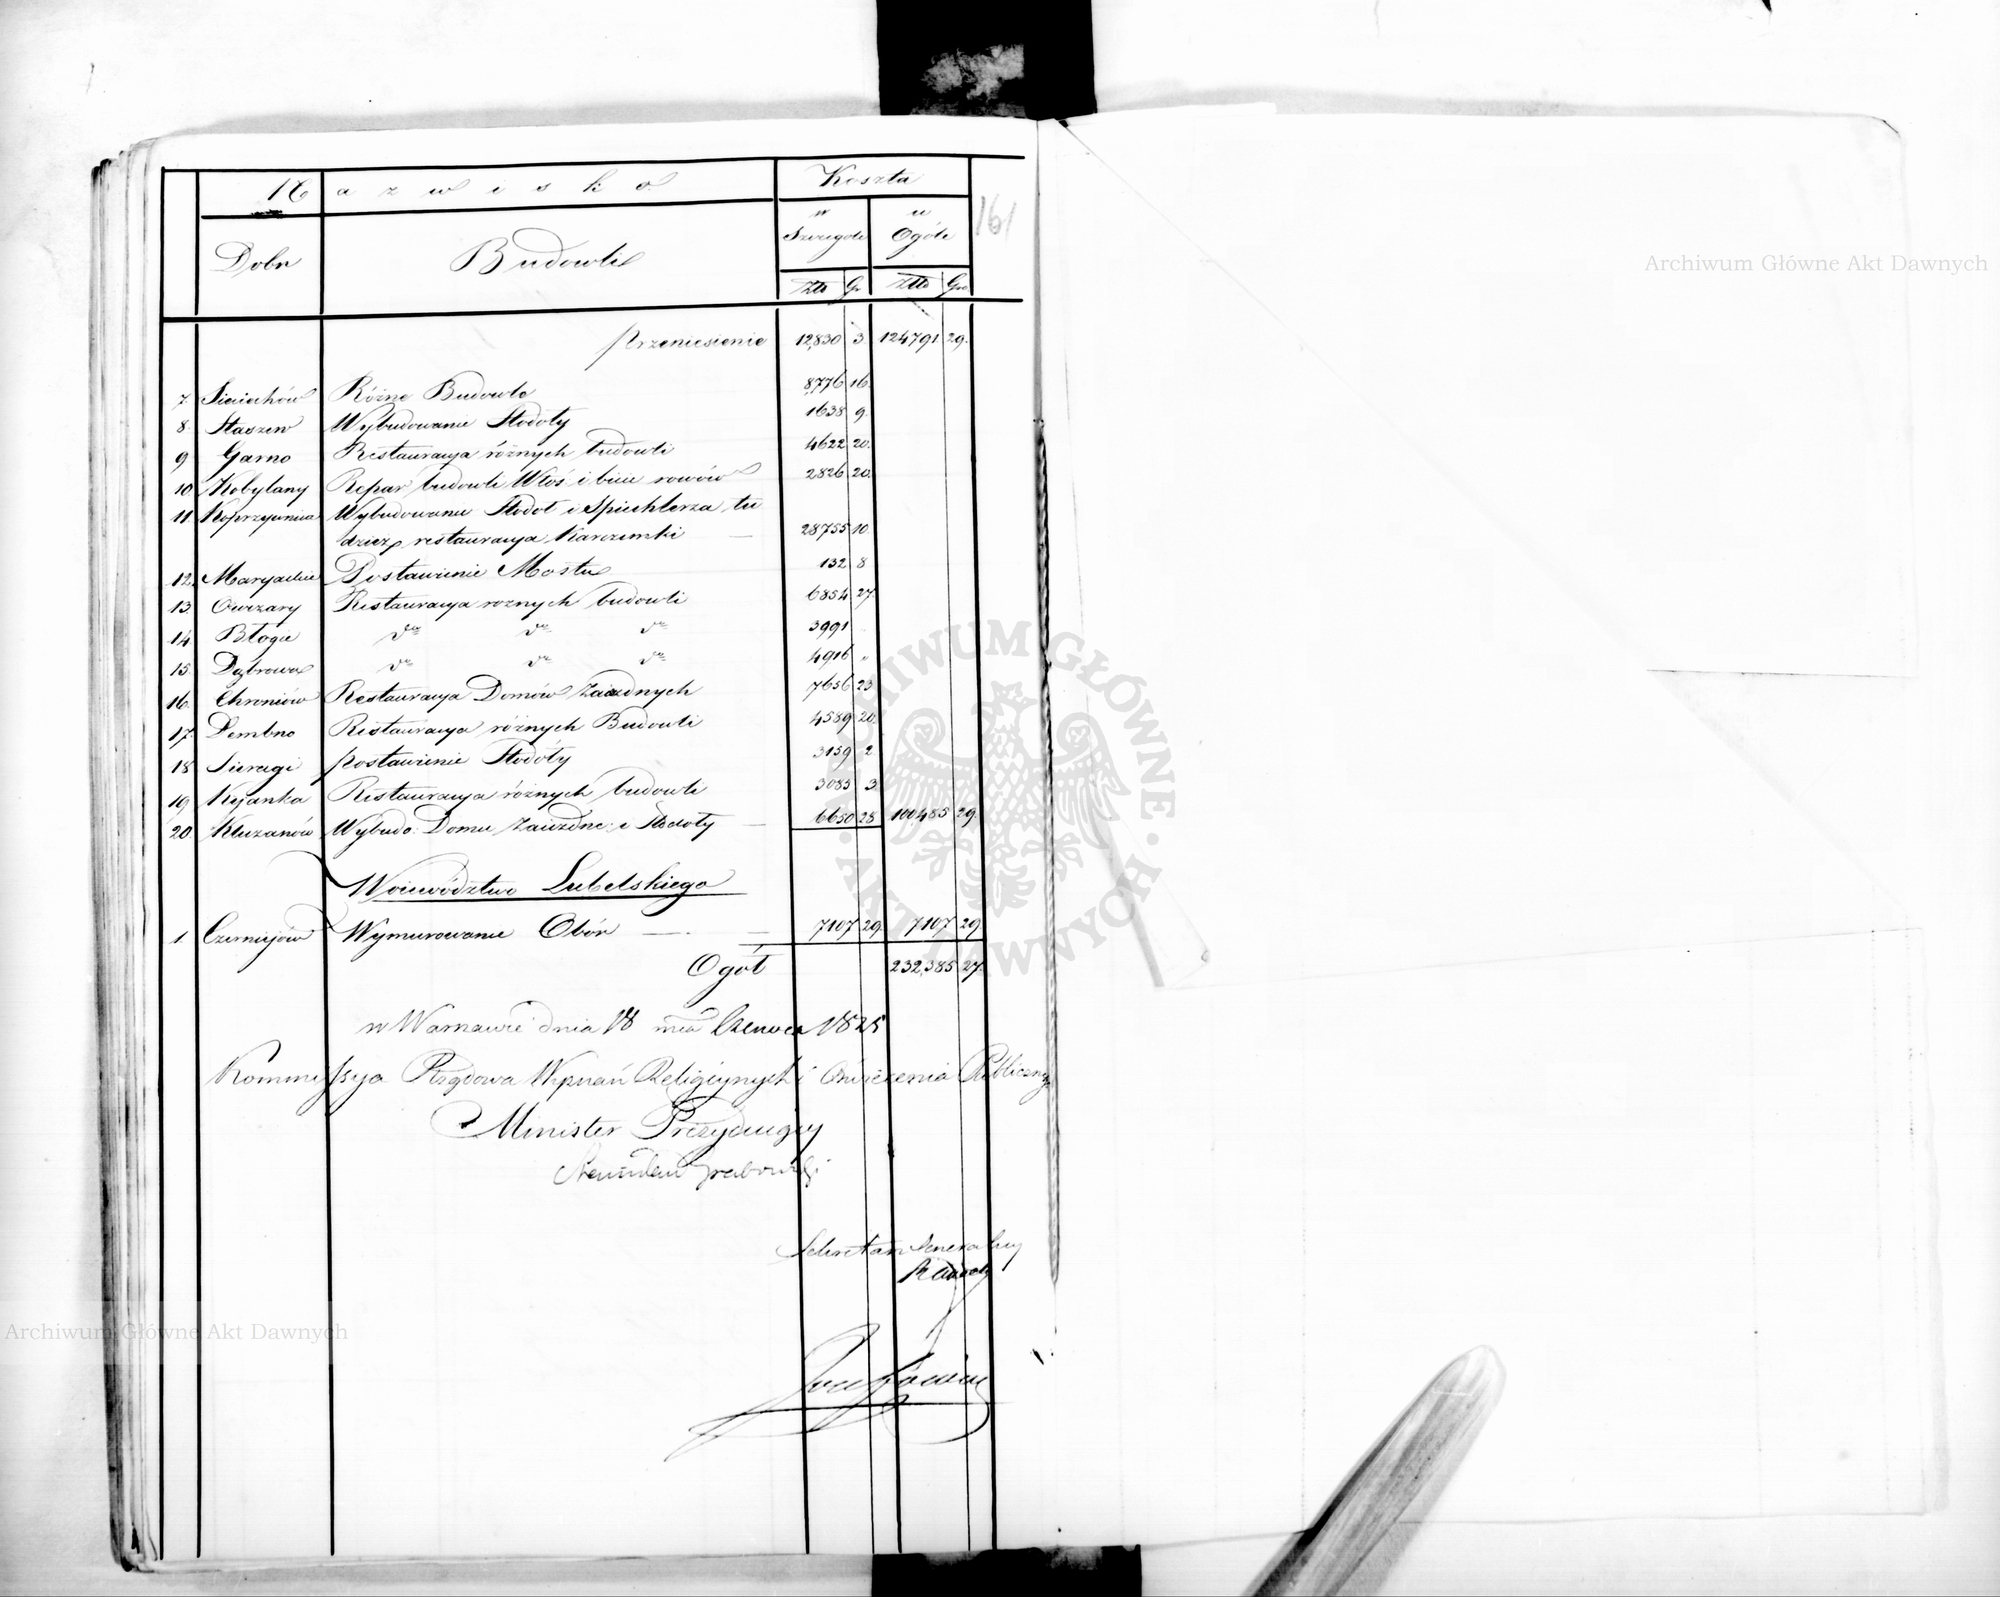 Nazwisko Koszta
161
w Szczególe w Ogóle
Dobr Budowli
Złt Gr Złt Gro
Przeniesienie 12,830 3 124791 29.
7. Sieciechów Różne Budowle 8,776 16.
8. Staszew Wybudowanie Stodoły 1638 9.
9 Garno Restauracya różnych budowli 4622 20.
10. Kobylany Repar budowli Włoś i bicie rowów 2826 20.
11. Koprzywnica Wybudowanie Stodoł i Spichlerza tu
dzież restauracya Karczemki — 28755 10.
12. Postawienie Mostu 132 8
13 Owczary Restauracya roznych budowli 6854 27.
14 Błogie do do do 3991
15. Dąbrowa do do do 4916 "
16. Chroniów Restauracya Domów Zaiezdnych 7656 23
17. Dembno Restauracya różnych Budowli 4589 20.
18 Sieragi postawienie Stodoły 3159 2
19 Kijanka Restauracya różnych budowli 3085 3.
20. Kluzanów Wybudo: Domu Zaiezdne: i Stodoły — 6650 28 100,485 29.
Woiewództwo Lubelskiego
1. Czerniejów Wymurowanie Obór — . — 7107 29. 7107 29
Ogół 232,385 27.
w Warszawie dnia 18 mca Czerwca 1825
Kommissya Rządowa Wyznań Religijnych i Oświecenia Publiczneg
Minister Prezyduiący
Stanisław Grabowski
Sekretarz Generalny
Archiwum Główne Akt Dawnych
Archiwum Główne Akt Dawnych
ARCHIWUM GŁÓWNE · AKT DAWNYCH ·